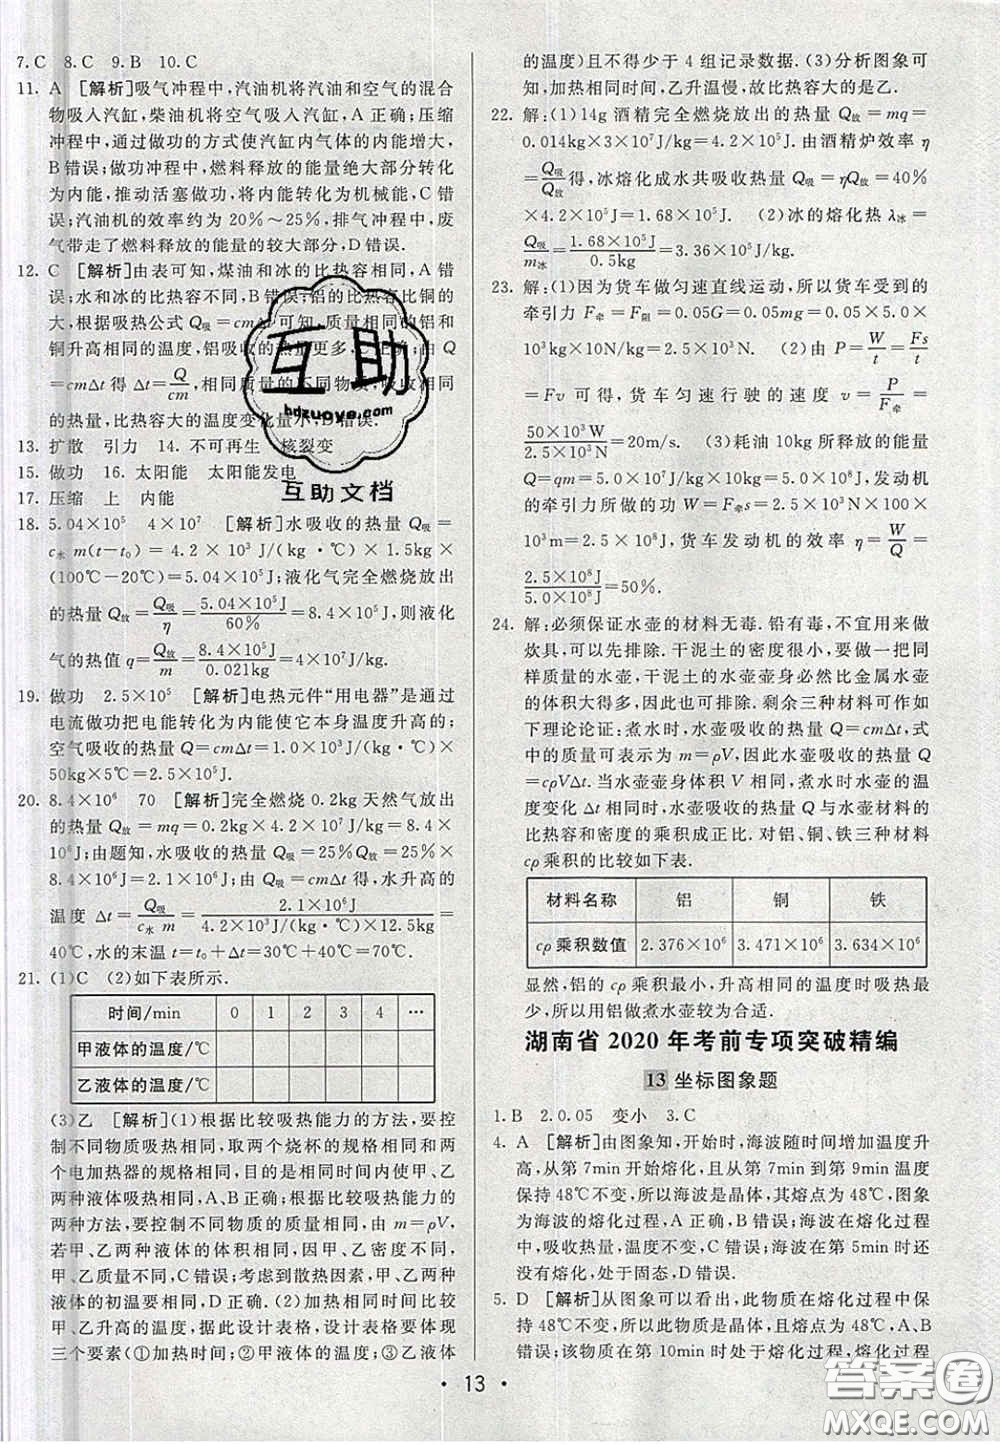 7.C　8.C　9.B　10.C
11. A　[解析]吸气冲程中,汽油机将汽油和空气的混合
物吸入汽缸,柴油机将空气吸入汽缸,A正确;压缩
冲程中,通过做功的方式使汽缸内气体的内能增大,
B错误;做功冲程中,燃料释放的能量绝大部分转化
为内能,推动活塞做功,内能转化为机械能,C错
误;汽油机的效率约为20%~25%,排气冲程中,废
气带走了燃料释放的能量的较大部分,D错误.
12. C　[解析]由表可知,煤油和冰的比热容相同,A错
误;水和冰的比热容不同,B错误;铝的比热容比铜的
大,根据吸热公式Q吸=cmΔt可知,质量相同的铝和
铜升高相同的温度,铝吸收的热量更多,C正确;由Q
=cmΔt得Δt=Q/cm,相同质量的不同物质,吸收相同
的热量,比热容大的温度变化量小,D错误.
13. 扩散　引力　14. 不可再生　核裂变
15. 做功　16. 太阳能　太阳能发电
17. 压缩　上　内能
18. 5.04×10⁵　4×10⁷　[解析]水吸收的热量Q吸=
c水m(t-t₀)=4.2×10³J/(kg·℃)×
(100℃-20℃)=5.04×10⁵J;液化气完全燃烧放出
的热量Q放=Q吸/η=5.04×10⁵J/60%=8.4×10⁵J,则液化
气的热值q=Q放/m=8.4×10⁵J/0.021kg=4×10⁷J/kg.
19. 做功　2.5×10⁵　[解析]电热元件“用电器”是通过
电流做功把电能转化为内能使它本身温度升高的;
空气吸收的热量Q=cmΔt=1.0×10³J/(kg·℃)×
50kg×5℃=2.5×10⁵J.
20. 8.4×10⁶　70　[解析]完全燃烧0.2kg天然气放出
的热量Q放=mq=0.2kg×4.2×10⁷J/kg=8.4×
10⁶J;由题知,水吸收的热量Q吸=25%Q放=25%×
8.4×10⁶J=2.1×10⁶J;由Q吸=cmΔt得,水升高的
温度Δt=Q吸/c水m=2.1×10⁶J/4.2×10³J/(kg·℃)×12.5kg=
40℃,水的末温t=t₀+Δt=30℃+40℃=70℃.
21. (1)C　(2)如下表所示.
时间/min 0 1 2 3 4 …
甲液体的温度/℃
乙液体的温度/℃
(3)乙　[解析](1)根据比较吸热能力的方法,要控
制不同物质吸热相同,取两个烧杯的规格相同和两
个电加热器的规格相同,目的是相同时间内使甲、乙
两种液体吸热相同,A、B错误;比较吸热能力的
两种方法,要控制不同物质的质量相同,由m=ρV,
若甲、乙两种液体的体积相同,因甲、乙密度不同,
甲、乙质量不同,C错误;考虑到散热因素,甲、乙两种
液体的初温要相同,D错误.(2)加热相同时间比较
甲、乙升高的温度,据此设计表格,设计表格要体现
三个要素(①加热时间;②甲液体的温度;③乙液体
的温度)且不少于4组记录数据.(3)分析图象可
知,加热相同时间,乙升温慢,故比热容大的是乙.
22. 解:(1)14g酒精完全燃烧放出的热量Q放=mq=
0.014kg×3×10⁷J/kg=4.2×10⁵J;由酒精炉效率η
=Q吸/Q放得,冰熔化成水共吸收热量Q吸=ηQ放=40%
×4.2×10⁵J=1.68×10⁵J.　(2)冰的熔化热λ冰=
Q吸/m冰=1.68×10⁵J/0.5kg=3.36×10⁵J/kg.
23. 解:(1)因为货车做匀速直线运动,所以货车受到的
牵引力F牵=F阻=0.05G=0.05mg=0.05×5.0×
10³kg×10N/kg=2.5×10³N.　(2)由P=W/t=Fs/t
=Fv可得,货车匀速行驶的速度v=P/F牵=
50×10³W/2.5×10³N=20m/s.　(3)耗油10kg所释放的能量
Q=qm=5.0×10⁷J/kg×10kg=5.0×10⁸J,发动机
的牵引力所做的功W=F牵s=2.5×10³N×100×
10³m=2.5×10⁸J,货车发动机的效率η=W/Q=
2.5×10⁸J/5.0×10⁸J=50%.
24. 解:必须保证水壶的材料无毒.铅有毒,不能用来做
炊具,可以先排除.干泥土的密度很小,要制作相同
质量的水壶,干泥土的水壶壶身必然比金属水壶
的体积大很多,也可排除.剩余三种材料可作如
下理论论证:煮水时,水壶吸收的热量Q=cmΔt,式
中的质量可表示为m=ρV,因此水壶吸收的热量Q
=cρVΔt.当水壶壶身体积V相同,煮水时水壶的温
度变化Δt相同时,水壶吸收的热量Q与水壶材料的
比热容和密度的乘积成正比.对铝、铜、铁三种材料
cρ乘积的比较如下表.
材料名称 铝 铜 铁
cρ乘积数值 2.376×10⁶ 3.471×10⁶ 3.634×10⁶
显然,铝的cρ乘积最小,升高相同的温度时吸热最
少,所以用铝做煮水壶较为合适.
湖南省2020年考前专项突破精编
13 坐标图象题
1. B　2. 0.05　变小　3. C
4. A　[解析]由图象知,开始时,海波随时间增加温度升
高,从第7min开始熔化,且从第7min到第9min温度
保持48℃不变,所以海波是晶体,其熔点为48℃,图象
为海波的熔化过程,A正确,B错误;海波在熔化过程
中,吸收热量,温度不变,C错误;海波在第5min时
还没有熔化,处于固态,D错误.
5. D　[解析]从图象可以看出,此物质在熔化过程中保持
48℃不变,所以此物质是晶体,且熔点为48℃,A、B
错误;该物质在第10min时处于熔化过程,熔化过程
· 13 ·
互助
hdzuoye.com
互助文档
答案圈
MXQE.COM